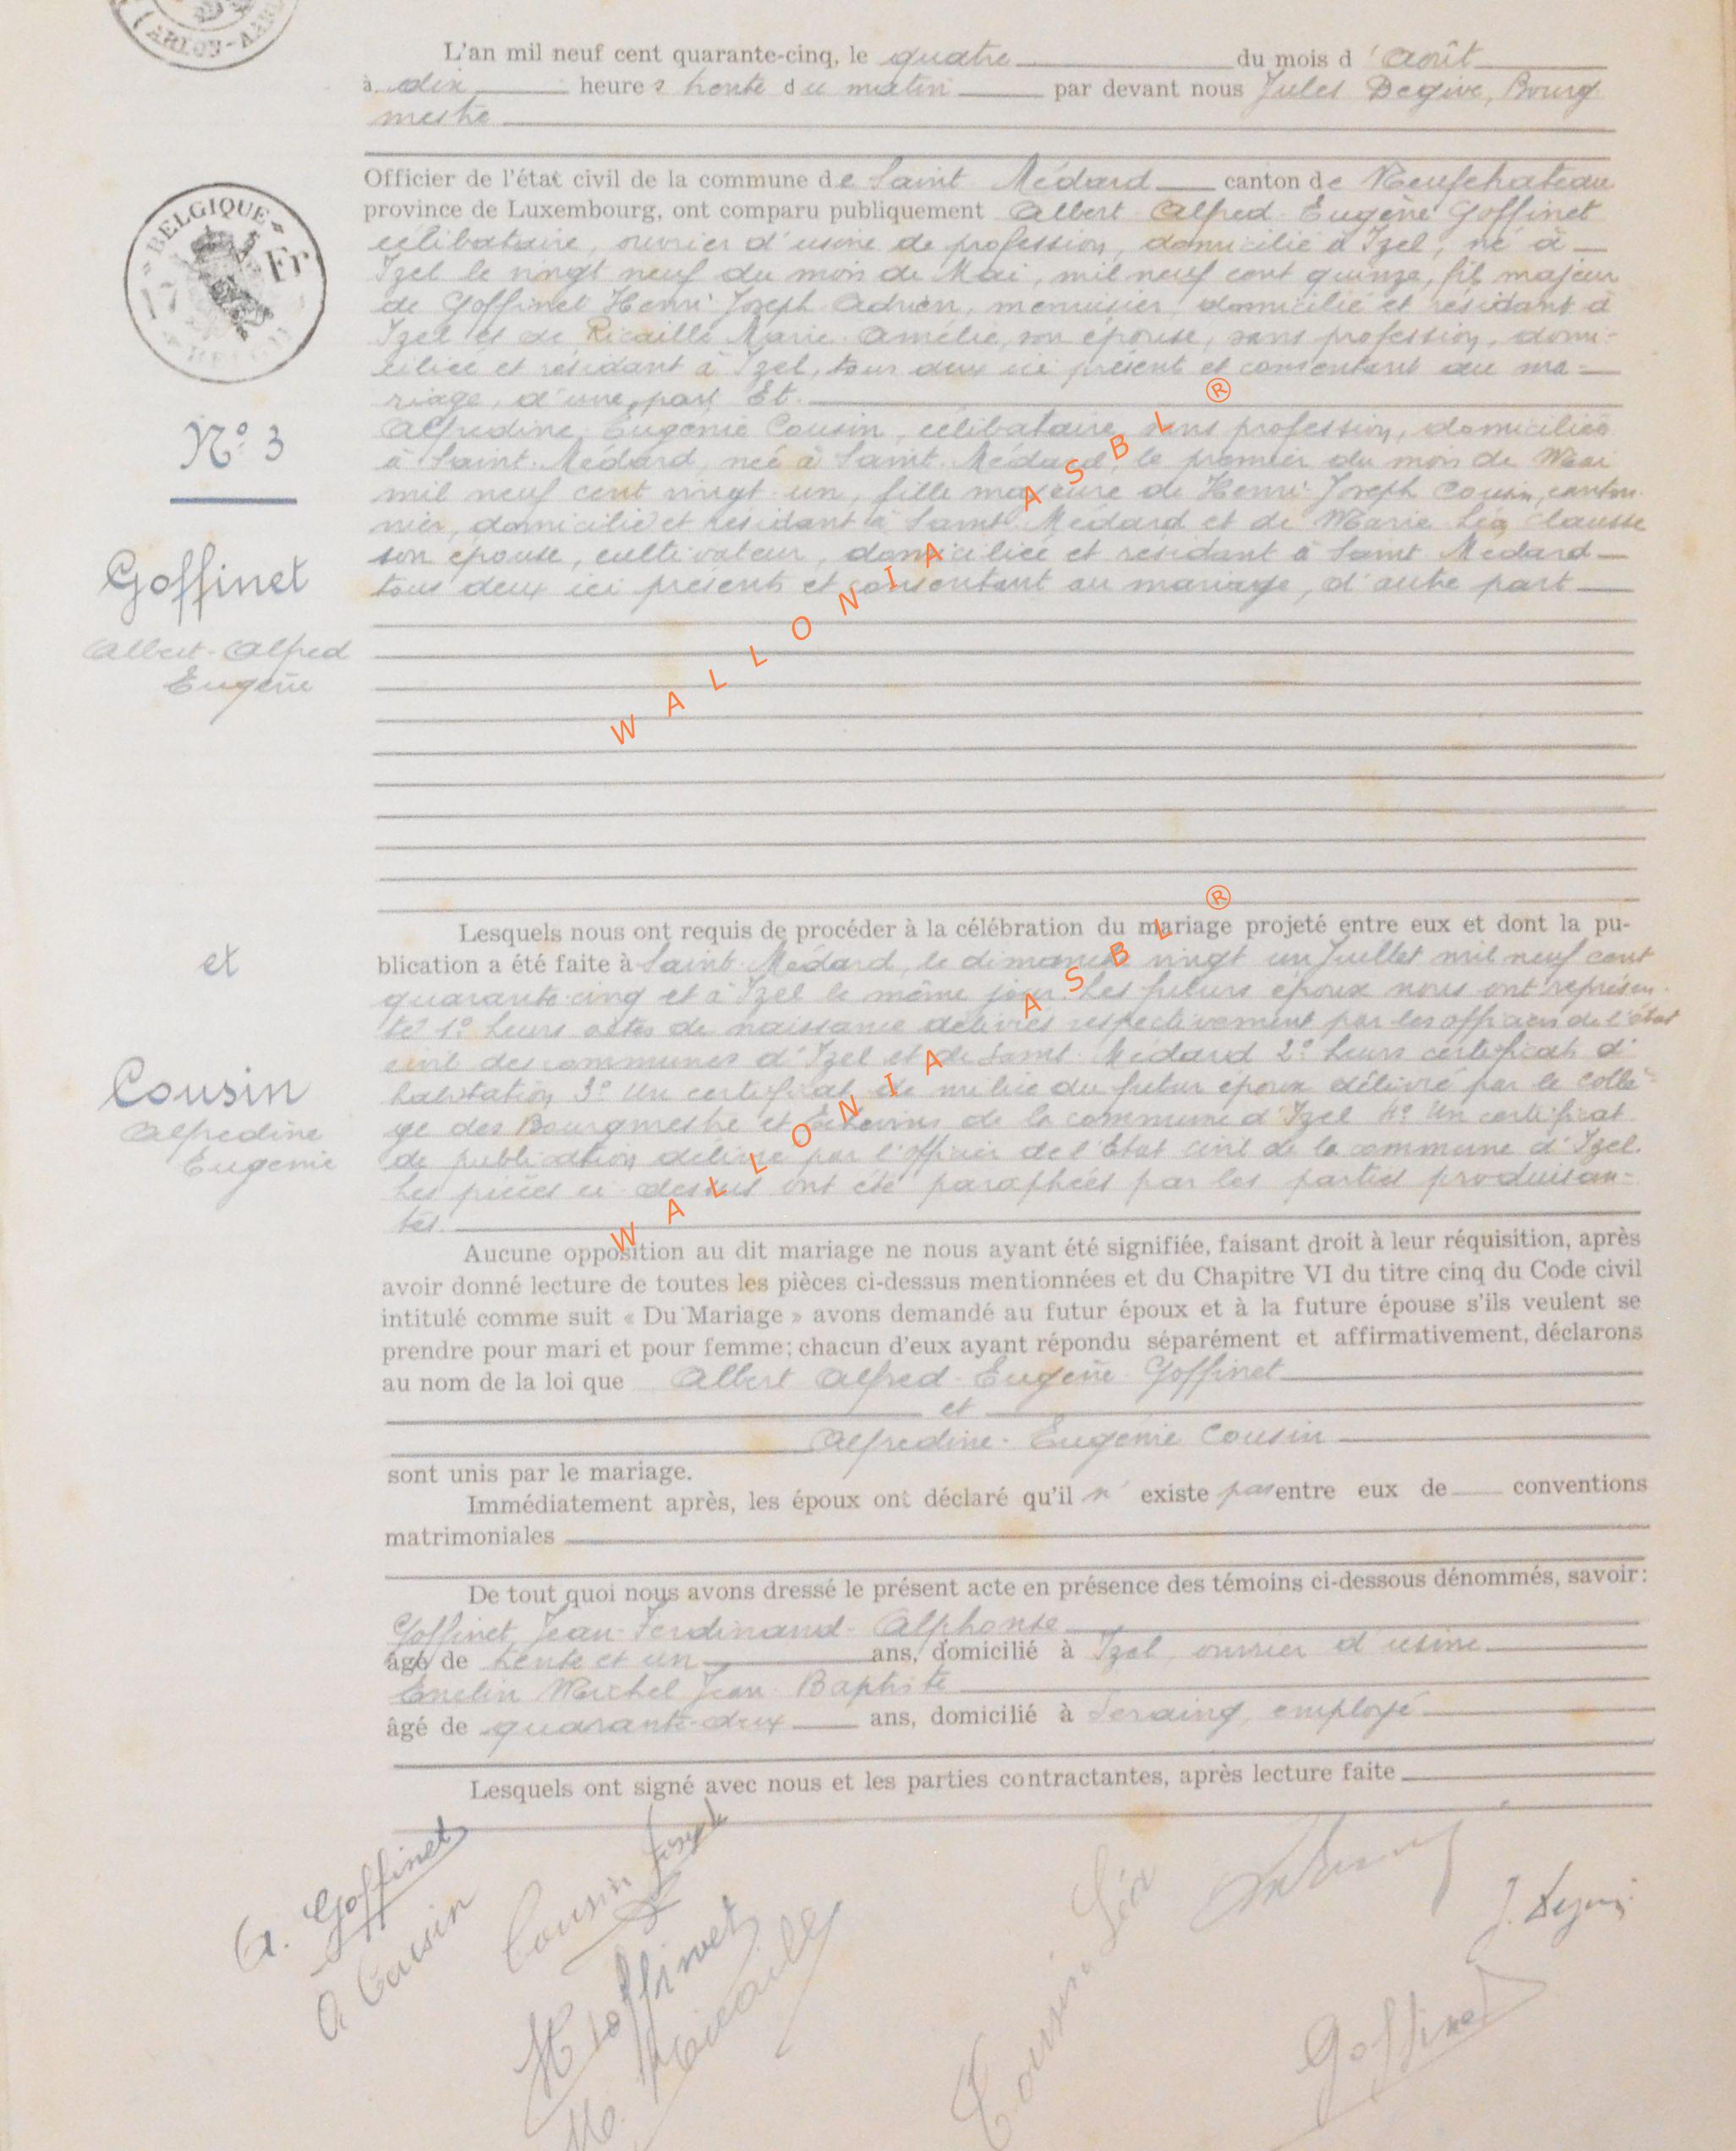 ARLON-AARL
L'an mil neuf cent quarante-cinq, le quatre du mois d'Août
à dix heures trente du matin par devant nous Jules Degive, Bourg
mestre
Officier de l'état civil de la commune de Saint Médard canton de Neufchateau
province de Luxembourg, ont comparu publiquement Albert Alfred Eugène Goffinet
célibataire, ouvrier d'usine de profession, domicilié à Izel, né à
Izel le vingt neuf du mois de Mai, mil neuf cent quinze, fils majeur
de Goffinet Henri Joseph Adrien, menuisier, domicilié et résidant à
Izel et de Ricaille Marie Amélie, son épouse, sans profession, domi-
ciliée et résidant à Izel, tous deux ici présent et consentant au ma-
riage, d'une part Et.
Alfredine Eugenie Cousin, célibataire, sans profession, domiciliée
à Saint Médard, née à Saint Médard, le premier du mois de Mai
mil neuf cent vingt un, fille majeure de Henri Joseph Cousin, canton-
nier, domicilié et résidant à Saint Médard et de Marie Léa Clausse
son épouse, cultivateur, domiciliée et résidant à Saint Médard
tous deux ici présents et consentant au mariage, d'autre part
BELGIQUE
Fr
BELGIE
N° 3
Goffinet
Albert-Alfred
Eugène
et
Cousin
Alfredine
Eugenie
Lesquels nous ont requis de procéder à la célébration du mariage projeté entre eux et dont la pu-
blication a été faite à Saint Médard, le dimanche vingt un Juillet mil neuf cent
quarante-cinq et à Izel le même jour. Les futurs époux nous ont représen-
té 1° Leurs actes de naissance délivrés respectivement par les officiers de l'état
civil des communes d'Izel et de Saint Médard 2° Leurs certificats d'
habitation 3° Un certificat de milice du futur époux délivré par le collè-
ge des Bourgmestre et Echevins de la commune d'Izel 4° Un certificat
de publication délivré par l'officier de l'Etat civil de la commune d'Izel.
Les pièces ci-dessus ont été paraphées par les parties produisan-
tes.
Aucune opposition au dit mariage ne nous ayant été signifiée, faisant droit à leur réquisition, après
avoir donné lecture de toutes les pièces ci-dessus mentionnées et du Chapitre VI du titre cinq du Code civil
intitulé comme suit « Du Mariage » avons demandé au futur époux et à la future épouse s'ils veulent se
prendre pour mari et pour femme; chacun d'eux ayant répondu séparément et affirmativement, déclarons
au nom de la loi que Albert Alfred-Eugène Goffinet
et
Alfredine-Eugénie Cousin
sont unis par le mariage.
Immédiatement après, les époux ont déclaré qu'il n' existe pas entre eux de conventions
matrimoniales
De tout quoi nous avons dressé le présent acte en présence des témoins ci-dessous dénommés, savoir:
Goffinet Jean-Ferdinand-Alphonse
âgé de trente et un ans, domicilié à Izel, ouvrier d'usine
Michel Jean-Baptiste
âgé de quarante-deux ans, domicilié à Seraing, employé
Lesquels ont signé avec nous et les parties contractantes, après lecture faite
A. Goffinet
A Cousin
Cousin Joseph
H Goffinet
M. Ricaille
Cousin Léa
J. Degive
Goffinet
WALLONIA ASBL ®
WALLONIA ASBL ®